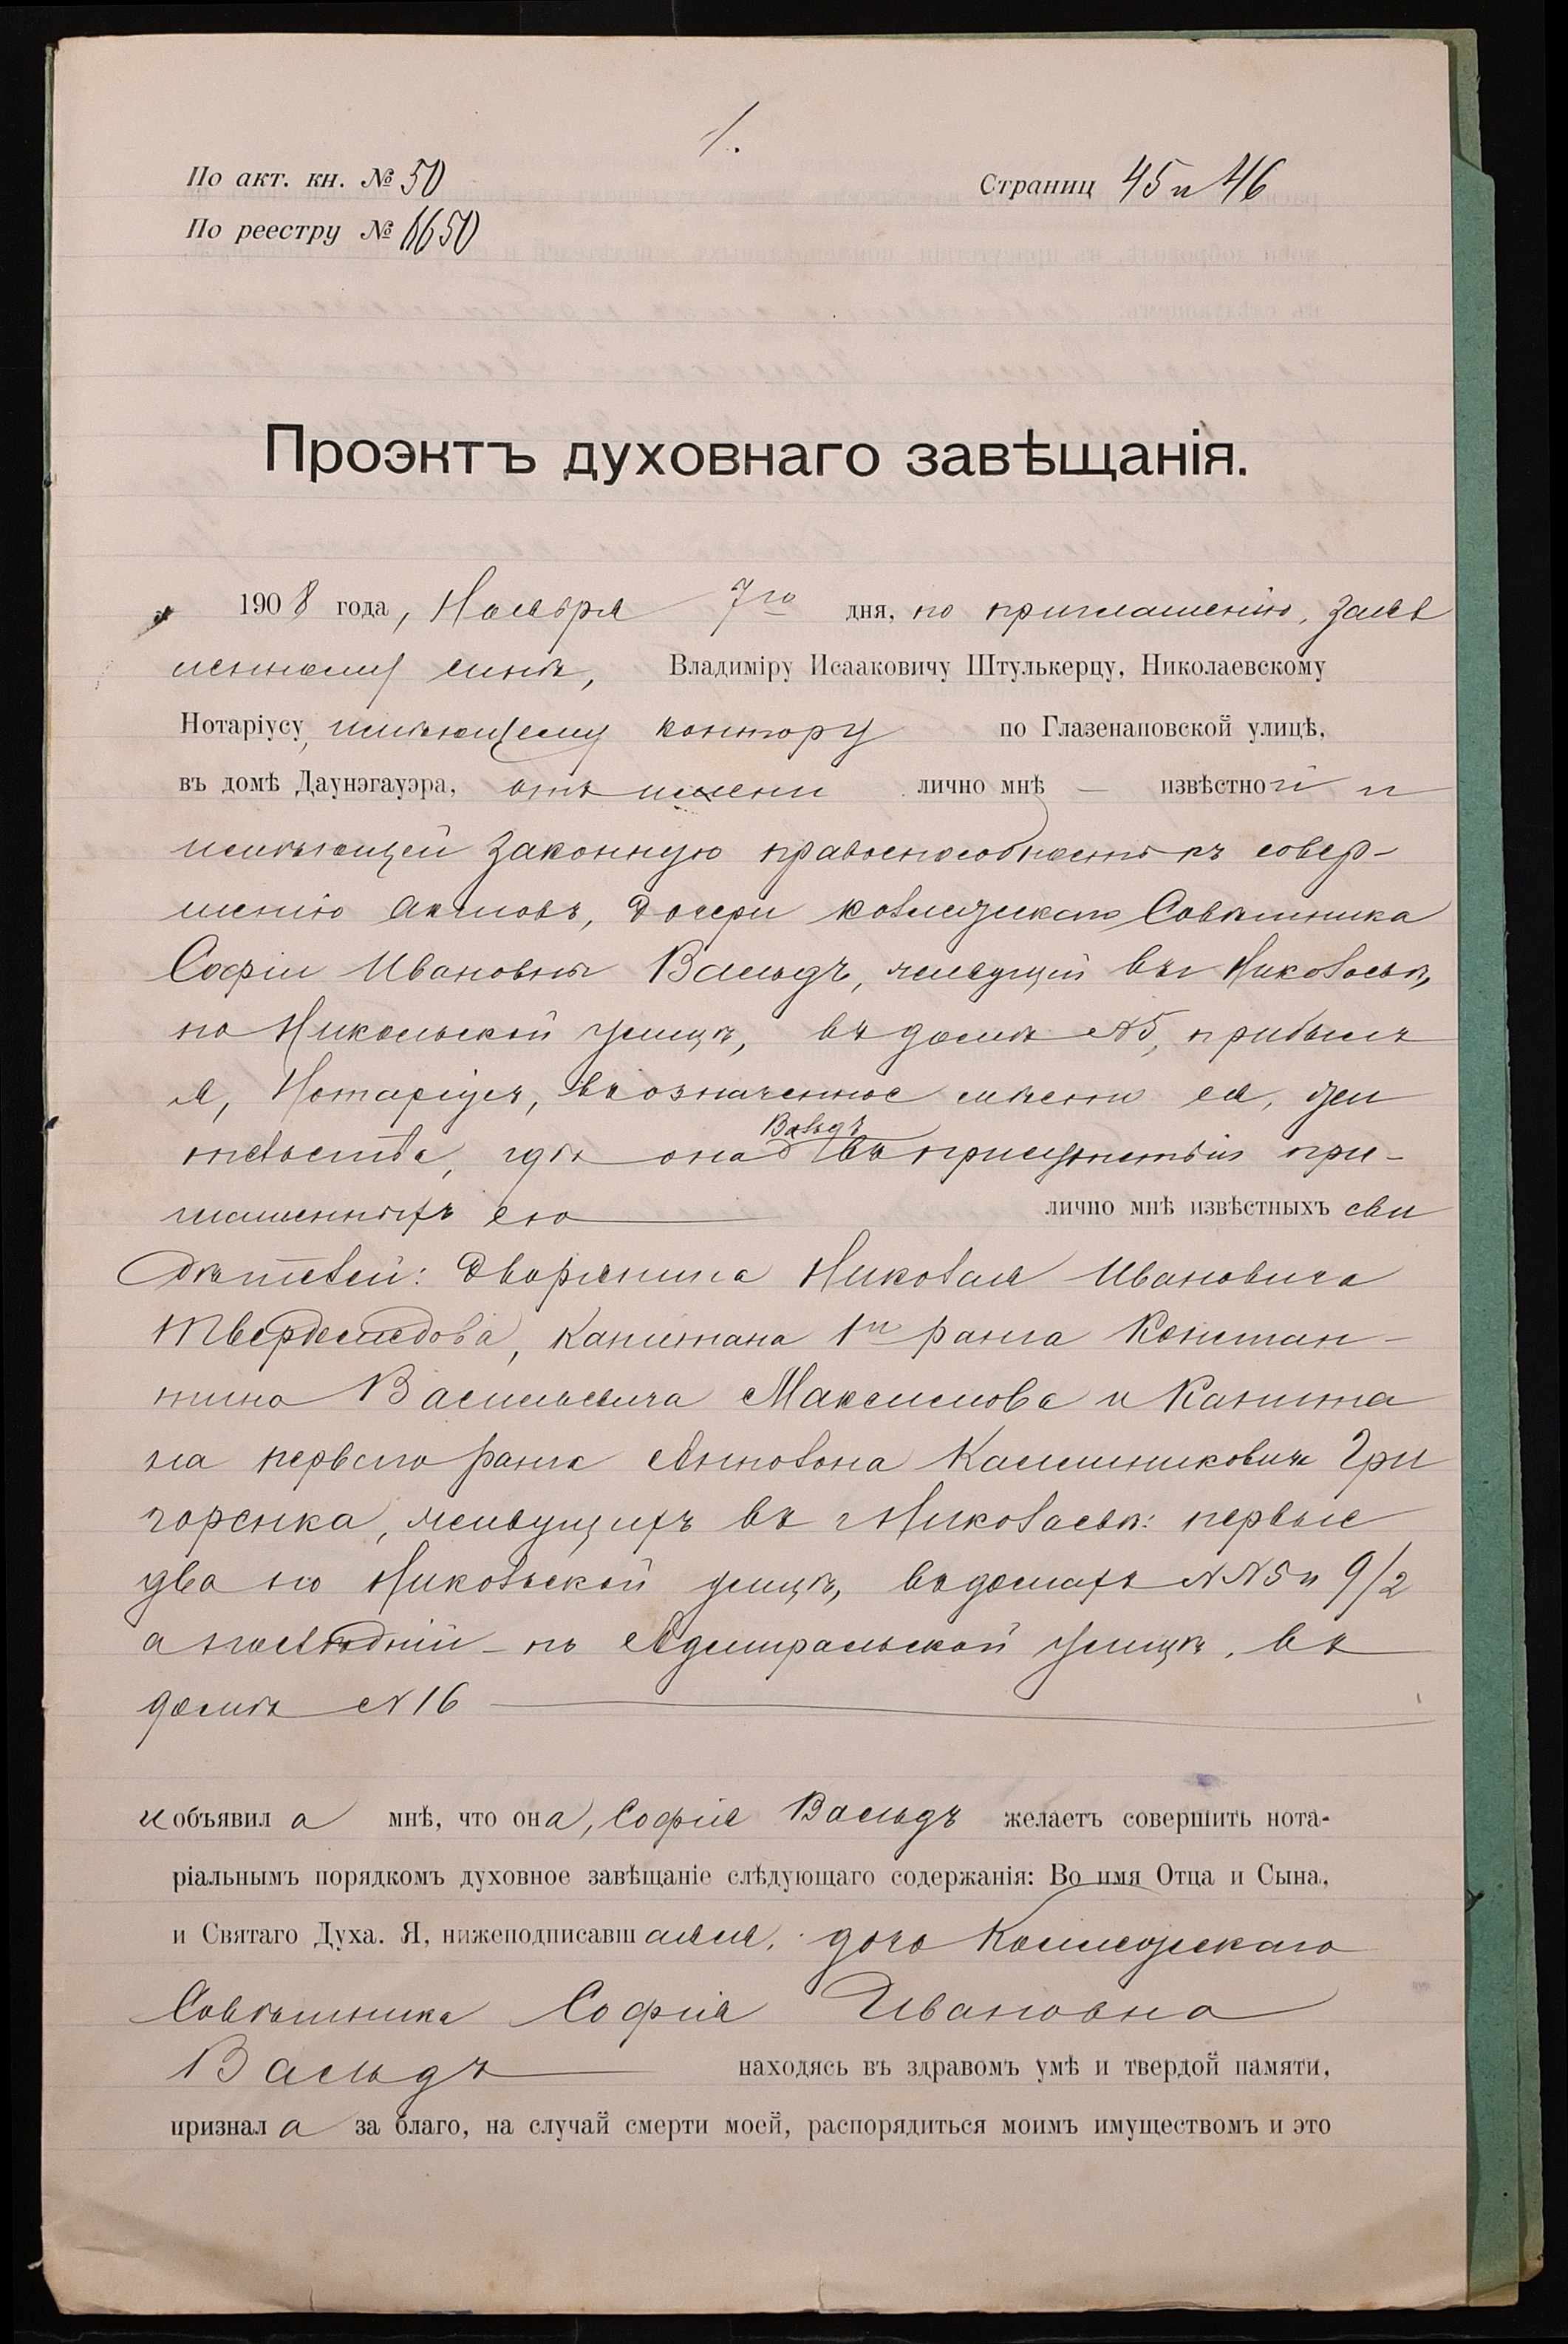 1.
По акт. кн. № 50
Страниц 45 и 46
По реестру № 1650
Проэктъ духовнаго завѣщанія.
1908 года, Ноября 7го дня, по приглашенію, заяв
ленному мнѣ, Владиміру Исааковичу Штулькерцу, Николаевскому
Нотаріусу, имѣющему контору по Глазенаповской улицѣ,
въ домѣ Даунэгауэра, отъ имени лично мнѣ — извѣстной и
имѣющей законную правоспособность къ совер-
шенію актовъ, дочери коллежскаго Совѣтника
Софіи Ивановны Вальдъ, живущей въ г Николаевѣ,
по Никольской улицѣ, въ домѣ №5, прибылъ
я, Нотаріусъ, въ означенное мѣсто ея, жи
тельства, гдѣ она Вальдъ въ присутствіи при-
глашенныхъ ею лично мнѣ извѣстныхъ сви
дѣтелей: Дворянина Николая Ивановича
Твердомедова, Капитана 1го ранга Констан-
тина Васильевича Максимова и Капита
на перваго ранга Антона Григоренка, живущихъ въ г Николаевѣ: первые
два по Никольской улицѣ, въ домахъ №№5 и 9/2
а послѣдній - по Адмиральской улицѣ, въ
домѣ №16
и объявила мнѣ, что она, Софія Вальдъ желаетъ совершить нота-
ріальнымъ порядкомъ духовное завѣщаніе слѣдующаго содержанія: Во имя Отца и Сына,
и Святаго Духа. Я, нижеподписавшаяся, дочь Коллежскаго
Совѣтника Софія Ивановна
Вальдъ находясь въ здравомъ умѣ и твердой памяти,
признала за благо, на случай смерти моей, распорядиться моимъ имуществомъ и это